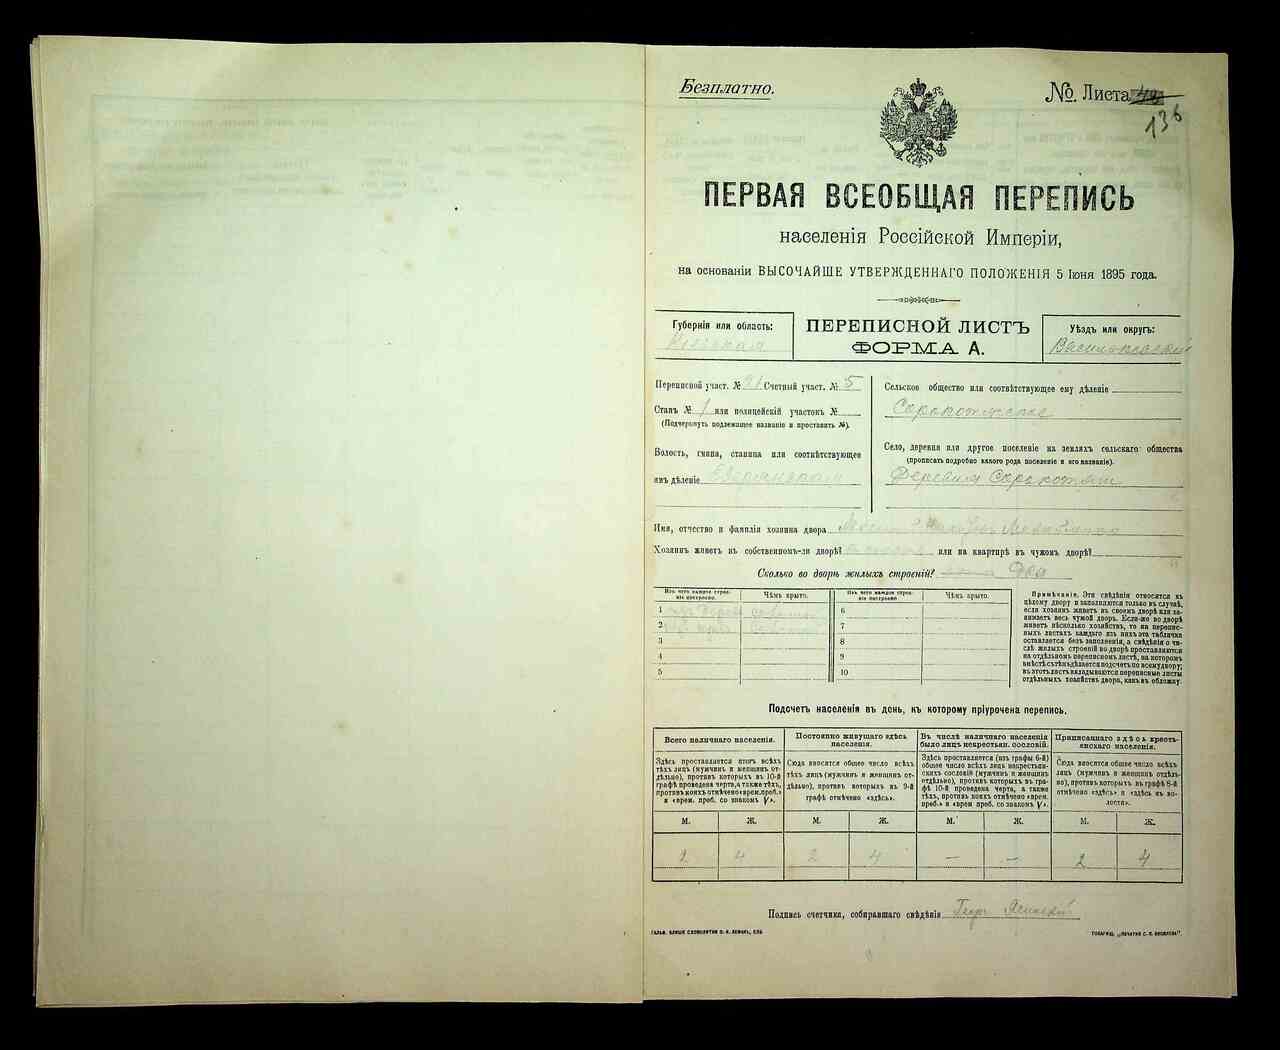 Безплатно.
№. Листа
136
ПЕРВАЯ ВСЕОБЩАЯ ПЕРЕПИСЬ
населенія Россійской Имперіи,
на основаніи ВЫСОЧАЙШЕ УТВЕРЖДЕННАГО ПОЛОЖЕНІЯ 5 Іюня 1895 года.
Губернія или область:
Кіевская
ПЕРЕПИСНОЙ ЛИСТЪ
ФОРМА А.
Уѣздъ или округъ:
Васильковскій
Переписной участ. № 21 Счетный участ. № 5
Станъ № 1 или полицейскій участокъ №
(Подчеркнуть подлежащее названіе и проставить №).
Волость, гмина, станица или соотвѣтствующее
имъ дѣленіе
Сельское общество или соотвѣтствующее ему дѣленіе
Село, деревня или другое поселеніе на земляхъ сельскаго общества
(прописать подробно какого рода поселеніе и его названіе).
Деревня
Имя, отчество и фамилія хозяина двора
Хозяинъ живетъ въ собственномъ-ли дворѣ? или на квартирѣ въ чужом дворѣ?
Сколько во дворѣ жилыхъ строеній? Два
Изъ чего каждое строеніе построено.
Чѣмъ крыто.
Изъ чего каждое строеніе построено
Чѣмъ крыто.
1
2
3
4
5
6
7
8
9
10
Примѣчаніе. Эти свѣдѣнія относятся къ
цѣлому двору и заполняются только въ случаѣ,
если хозяинъ живетъ въ своемъ дворѣ или занимаетъ
весь чужой дворъ. Если-же во дворѣ
живетъ нѣсколько хозяйствъ, то на переписныхъ
листахъ каждаго изъ нихъ эта табличка
оставляется безъ заполненія, а свѣдѣнія о числѣ
жилыхъ строеній во дворѣ проставляются
на отдѣльномъ переписномъ листѣ, на которомъ
вмѣстѣ съ тѣмъ дѣлается подсчетъ по всему двору;
въ этотъ листъ вкладываются переписные листы
отдѣльныхъ хозяйствъ двора, какъ въ обложку.
Подсчетъ населенія въ день, къ которому пріурочена перепись.
Всего наличнаго населенія.
Здѣсь проставляется итогъ всѣхъ
тѣхъ лицъ (мужчинъ и женщинъ отдѣльно),
противъ которыхъ въ 10-й
графѣ проведена черта, а также тѣхъ,
противъ коихъ отмѣчено «врем. преб.»
и «врем. преб. со знакомъ V».
Постоянно живущаго здѣсь
населенія.
Сюда вносится общее число всѣхъ
тѣхъ лицъ (мужчинъ и женщинъ отдѣльно),
противъ которыхъ въ 9-й
графѣ отмѣчено «здѣсь».
Въ числѣ наличнаго населенія
было лицъ некрестьян. сословій.
Здѣсь проставляется (изъ графы 6-й)
общее число всѣхъ лицъ некрестьянскихъ
сословій (мужчинъ и женщинъ
отдѣльно), противъ которыхъ въ графѣ
10-й проведена черта, а также
тѣхъ, противъ коихъ отмѣчено «врем.
преб.» и «врем преб. со знакомъ V».
Приписаннаго здѣсь крестьянскаго
населенія.
Сюда вносится общее число всѣхъ
лицъ (мужчинъ и женщинъ отдѣльно),
противъ которыхъ въ графѣ 8-й
отмѣчено «здѣсь» и «здѣсь въ волости».
М. Ж. М. Ж. М. Ж. М. Ж.
2 4 2 4 — — 2 4
Подпись счетчика, собиравшаго свѣдѣнія